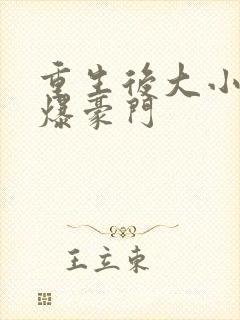 重生後大小
爆豪門
王立東